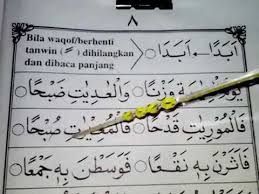 ٨
Bila waqof/berhenti
tanwin ( ـً ) dihilangkan
dan dibaca panjang
اَبَدًا ← اَبَدَا
وَزْنًا وَالْعٰدِيٰتِ ضَبْحًا
فَالْمُوْرِيٰتِ قَدْحًا فَالْمُغِيْرٰتِ صُبْحًا
فَاَثَرْنَ بِهٖ نَقْعًا فَوَسَطْنَ بِهٖ جَمْعًا